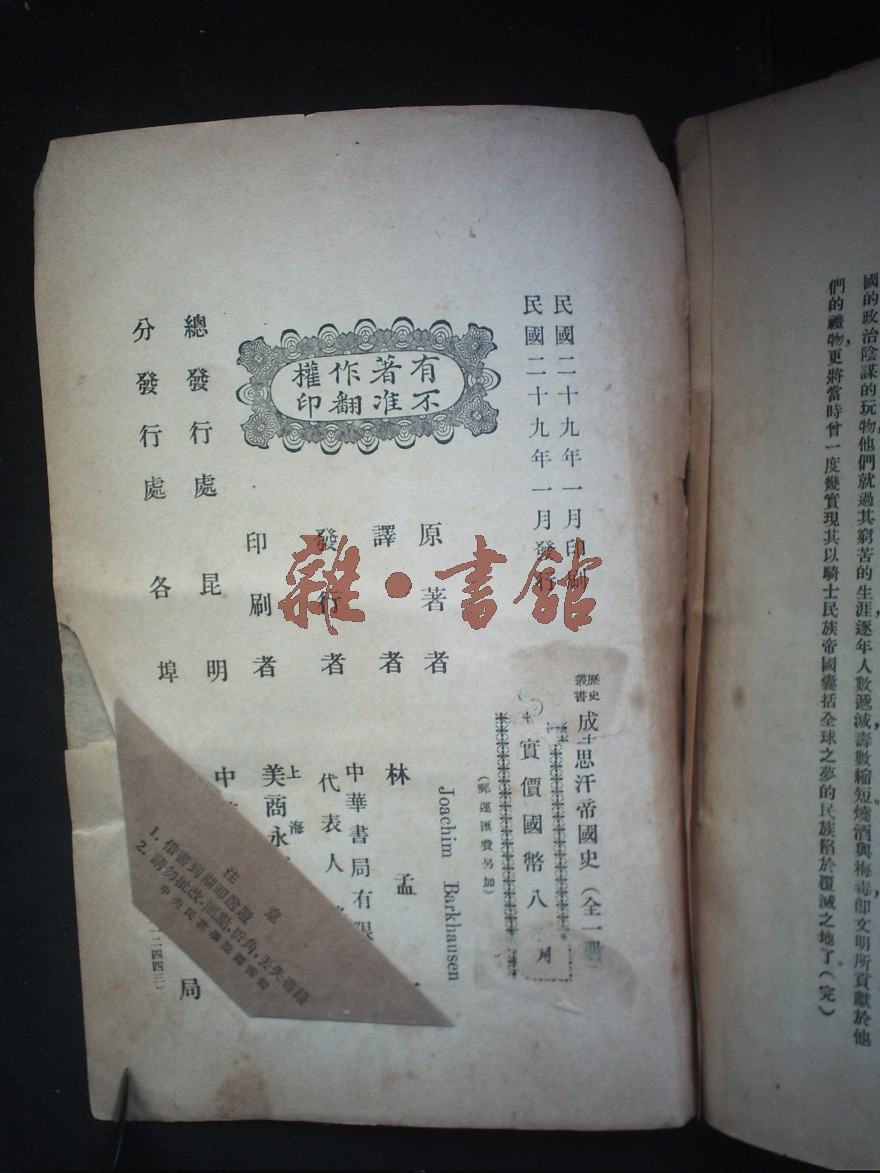 國的政治陰謀的玩物,他們就過其窮苦的生涯,逐年人數遞減,壽數縮短,燒酒與梅毒卽文明所貢獻於他
們的禮物,更將當時曾一度幾實現其以騎士民族帝國囊括全球之夢的民族陷於覆滅之地了。(完)
民國二十九年一月印刷
民國二十九年一月發行
歷史叢書
成思汗帝國史(全一冊)
實價國幣八
(郵運匯費另加)
有著作權
不准翻印
原著者 Joachim Barkhausen
譯者 林孟
發行者 中華書局有限
代表人
印刷者 上海
美商永
總發行處 昆明 中 局
分發行處 各埠
一二四四三)
注意
1. 借書到期即
2. 請勿批改·圈點·折角,
中央民族學院圖書館
雜·書館